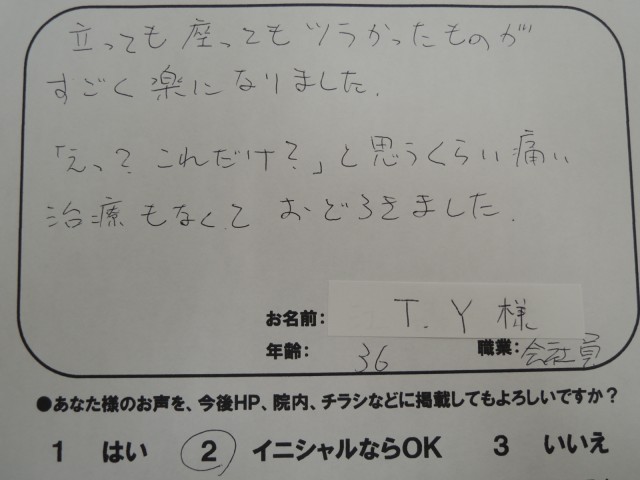 立っても座ってもツラかったものが
すごく楽になりました.
「えっ?これだけ?」と思うくらい痛い
治療もなくておどろきました.
お名前: T.Y様
年齢: 36 職業:会社員
●あなた様のお声を、今後HP、院内、チラシなどに掲載してもよろしいですか?
1 はい 2 イニシャルならOK 3 いいえ